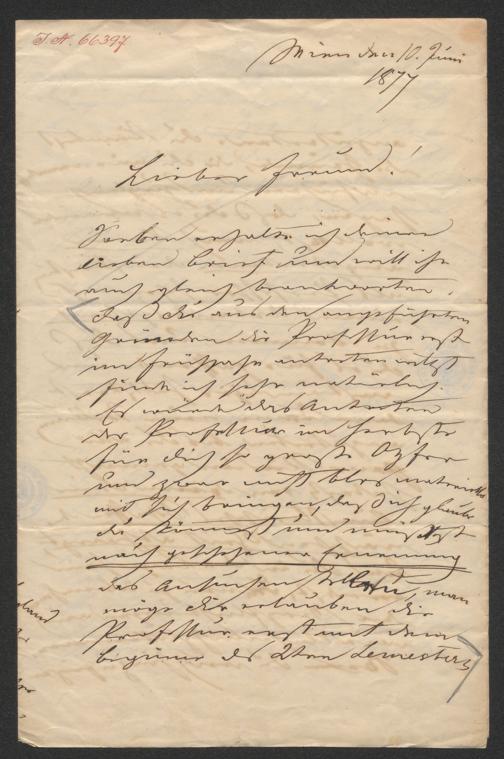 J.N. 66397
Wien den 10. Juni
1877
Lieber Freund!
Soeben erhalte ich deinen
lieben Brief und will ihn
auch gleich beantworten.
Daß du aus den angeführten
Gründen die Professur erst
im Frühjahr antreten willst
finde ich sehr natürlich.
Es würde das Antreten
der Professur im Herbste
für dich so große Opfer
und zwar nicht blos materielle
mit sich bringen, daß ich glaube
du könntest und müßtest
nach geschehener Ernennung
das Ansuchen stellen, man
möge dir erlauben die
Professur erst mit dem
Beginne des 2ten Semesters